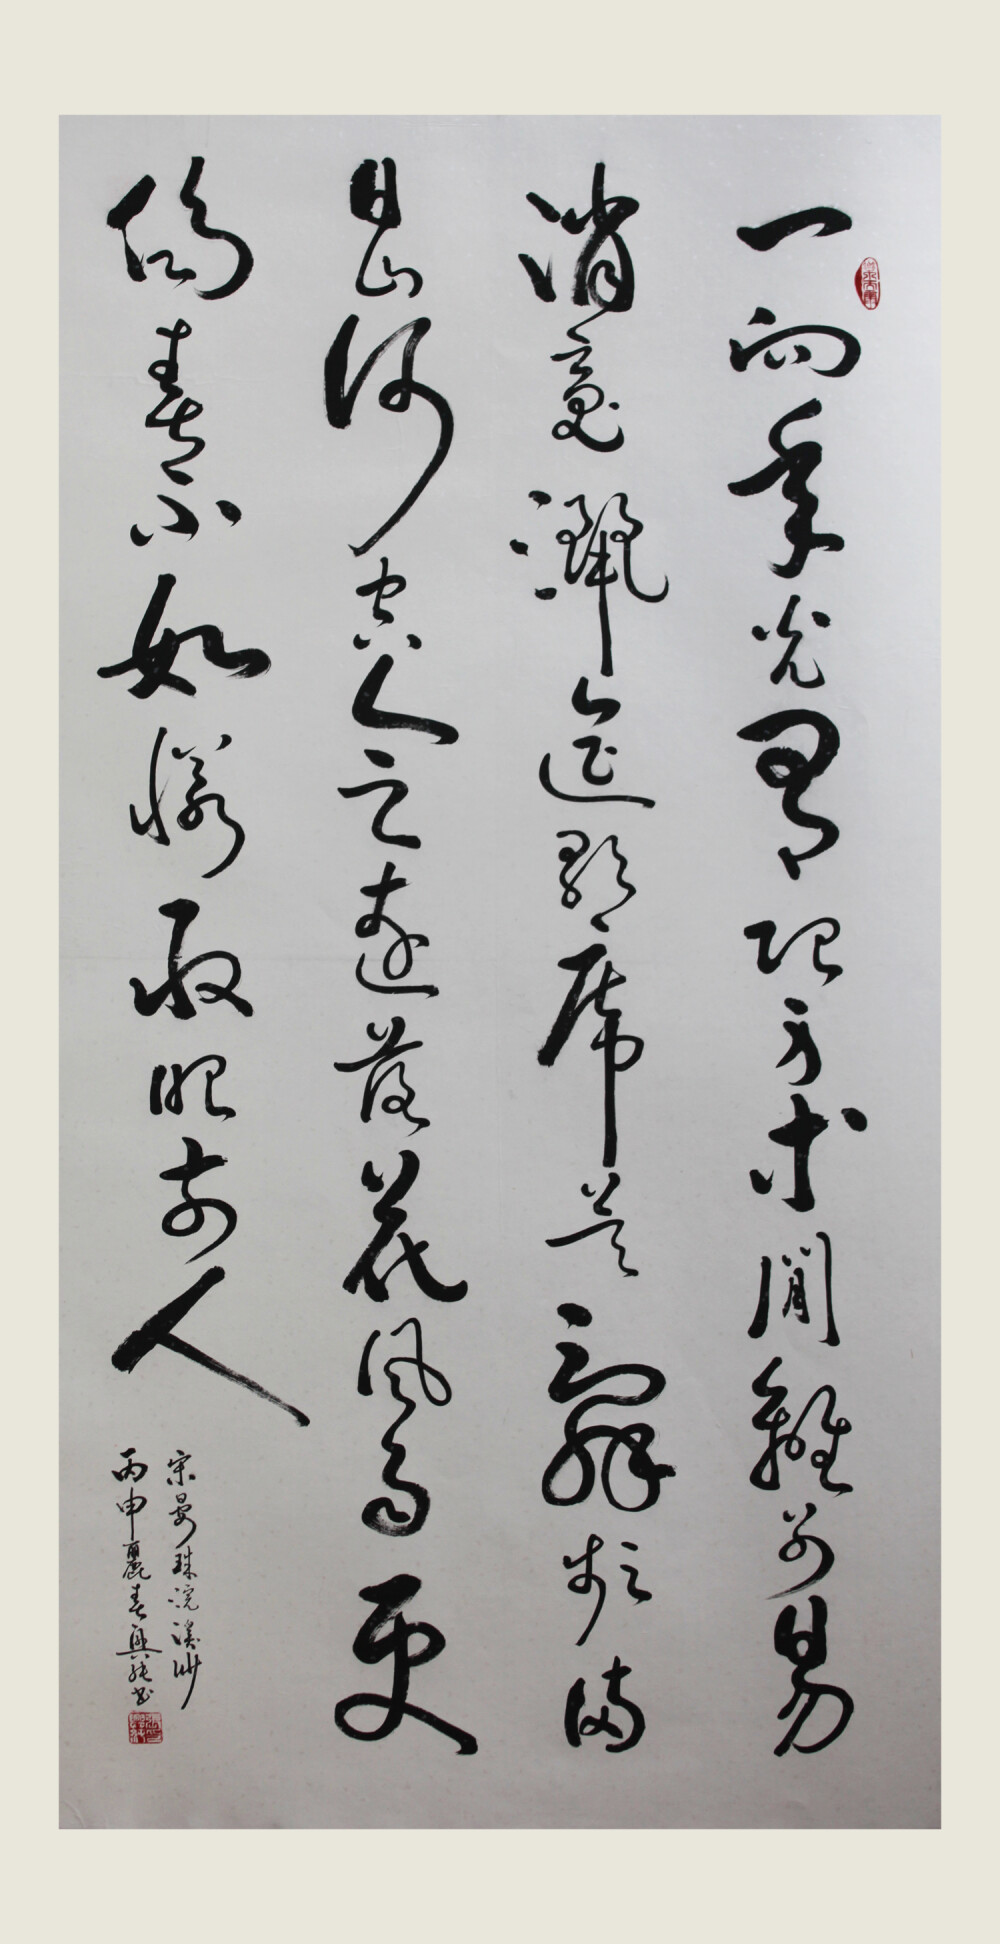 一向年光有限身等閒離別易
消魂灑筵歌席莫辭頻滿
目山河空念遠落花風雨更
傷春不如憐取眼前人
宋晏珠浣溪沙
丙申麗春興能书